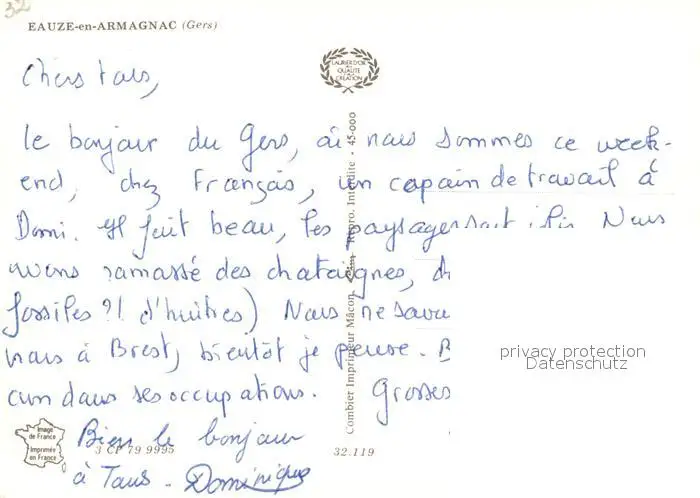 32
EAUZE-en-ARMAGNAC (Gers)
LAURIER D'OR
de la
QUALITÉ
CRÉATION
Chers tous,
le bonjour du Gers, où nous sommes ce week-
end, chez François, un copain de travail à
Domi. Il fait beau, les paysages sont Nous
avons ramassé des chataignes,
fossiles ?! d'huitres) Nous ne savo
nous à Brest, bientôt je pense. B
cun dans ses occupations. Grosses
Bien le bonjour
à Tous - Dominique
Combier Imprimeur Mâcon Repro. Interdite - 45-000
Image
de France
Imprimée
en France
3 CP 79 9995
32.119
privacy protection
Datenschutz